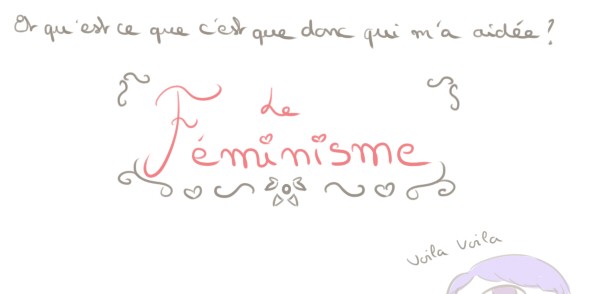 Et qu'est ce que c'est que donc qui m'a aidée ?
Le
Féminisme
voila voila